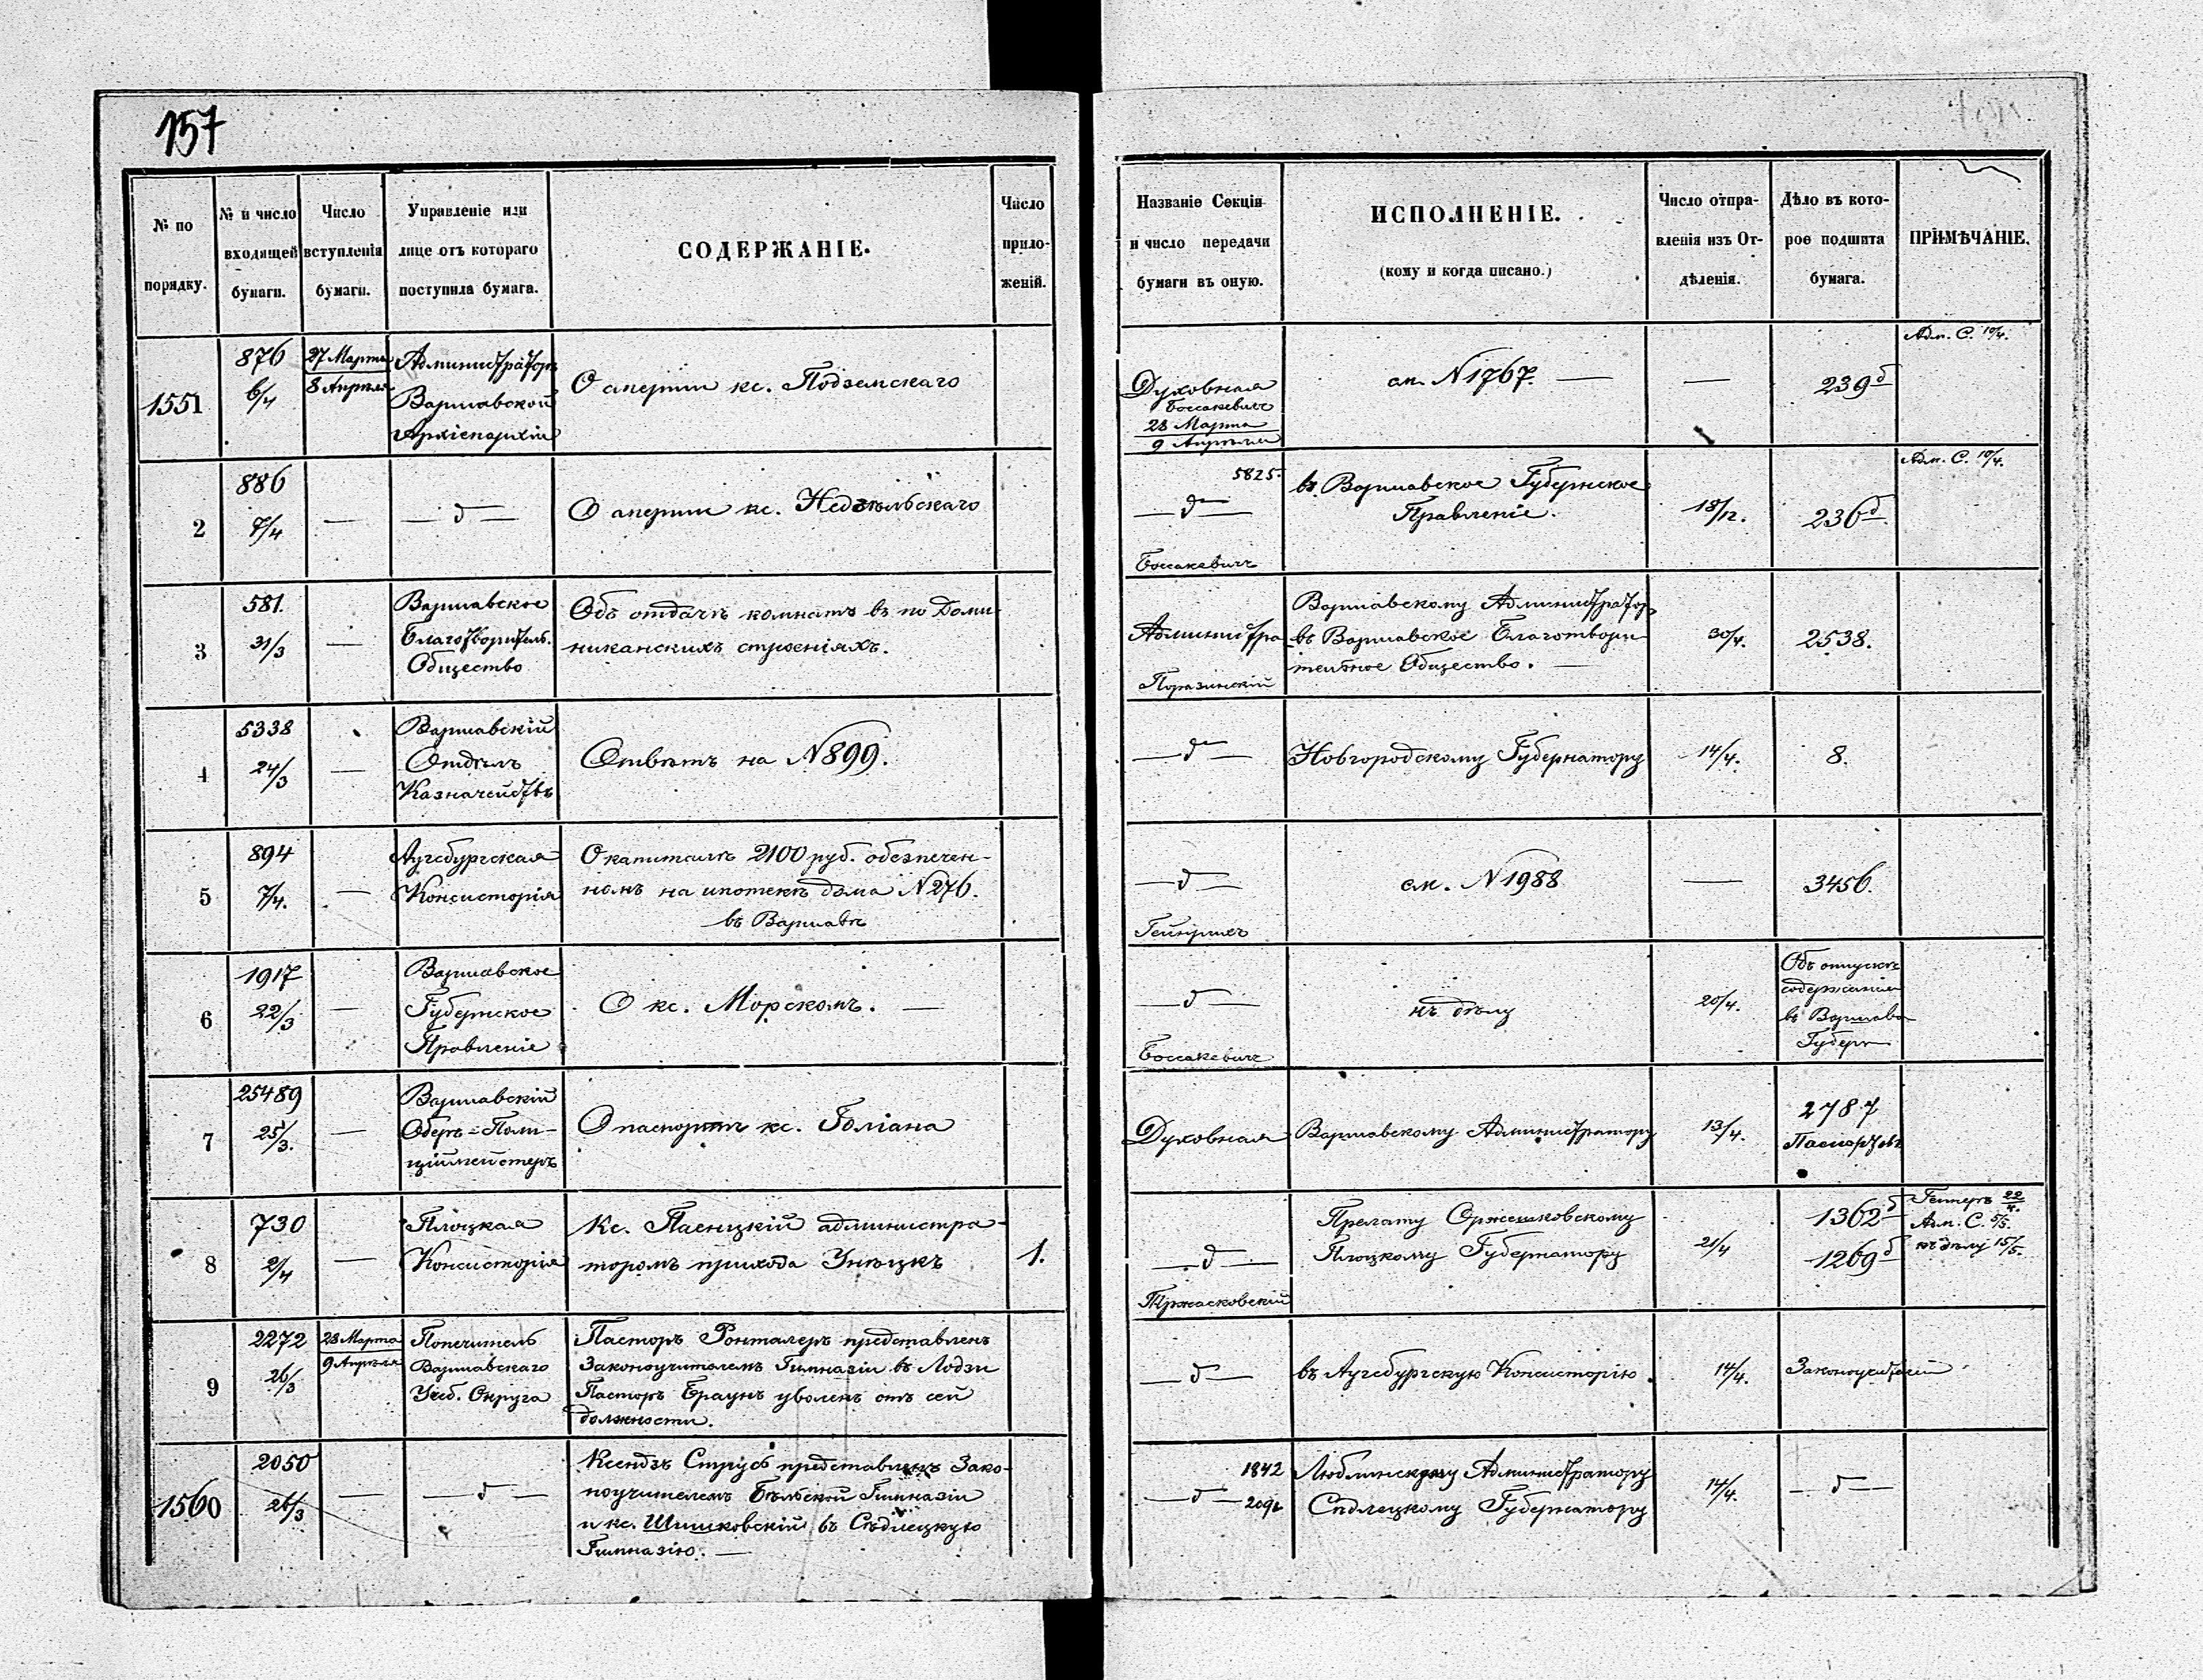 157
№ по порядку.
№ и число входящей бумаги.
Число вступленія бумаги.
Управленіе или лице отъ котораго поступила бумага.
СОДЕРЖАНІЕ.
Число приложеній.
Названіе Секціи и число передачи бумаги въ оную.
ИСПОЛНЕНІЕ.
(кому и когда писано.)
Число отправленія изъ Отдѣленія.
Дѣло въ которое подшита бумага.
ПРИМѢЧАНІЕ.
1551
876
6/4
27 Марта
8 Апрѣля
Администраторъ
Варшавской
Архіепархіи
О смерти кс. Подземскаго
Духовная
Боссакевичъ
28 Марта
9 Апрѣля
см. N 1767. —
—
239б
Адм. С. 10/4.
2
886
7/4
—
— д —
О смерти кс. Недзѣльскаго
5825.
— д —
Боссакевичъ
въ Варшавское Губернское
Правленіе.
18/12.
236б.
Адм. С. 10/4.
3
581.
31/3
—
Варшавское
Благотворитель.
Общество
Объ отдачѣ комнатъ въ по Доми-
никанскихъ строеніяхъ.
Администра
Поразинскій
Варшавскому Администратор
въ Варшавское Благотвори-
тельное Общество. —
30/4.
2538.
4
5338
24/3
—
Варшавскій
Отдѣлъ
Казначействъ
Отвѣтъ на N 899.
— д —
Новгородскому Губернатору
14/4.
8.
5
894
7/4.
—
Аугсбургская
Консисторія
О капиталѣ 2100 руб. обезпечен-
номъ на ипотекѣ дома N 276.
въ Варшавѣ
— д —
Гейнрихъ
см. N 1988
—
3456.
6
1917
22/3
—
Варшавское
Губернское
Правленіе
О кс. Морскомъ. —
— д —
Боссакевичъ
къ дѣлу
20/4.
Объ отпускѣ
содержанія
въ Варшавс
Губерн
7
25489
25/3.
—
Варшавскій
Оберъ-Поли-
ціймейстеръ
О паспортѣ кс. Голіана
Духовная
Варшавскому Администратору
13/4.
2787
Паспортовъ
8
730
2/4
—
Плоцкая
Консисторія
Кс. Пасицкій администра-
торомъ прихода Унѣцкъ
1.
— д —
Тржасковскій
Прелату Оржешковскому
Плоцкому Губернатору
21/4
1362б
1269б
22/4.
Адм. С. 5/5.
къ дѣлу 15/5.
9
2272
26/3
28 Марта
9 Апрѣля
Попечитель
Варшавскаго
Учеб. Округа
Пасторъ Ронталеръ представленъ
Законоучителемъ Гимназіи въ Лодзи
Пасторъ Браунъ уволенъ отъ сей
должности.
— д —
въ Аугсбургскую Консисторію.
14/4.
Законоучителей
1560
2050
26/3
—
— д —
Ксендзъ Струсъ представленъ Зако-
ноучителемъ Бѣльской Гимназіи
и кс. Шишковскій въ Сѣдлецкую
Гимназію. —
1842
— д —
209
Люблинскому Администратору
Сѣдлецкому Губернатору
14/4.
— д —